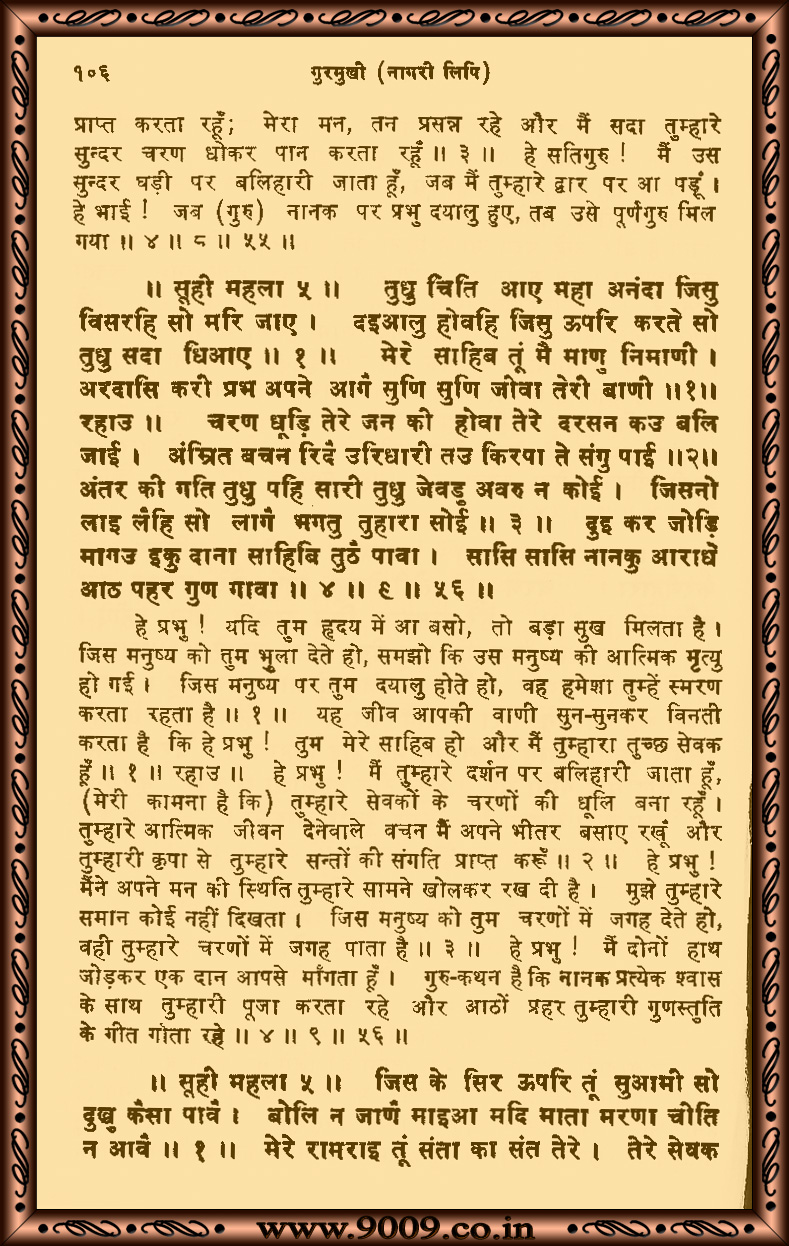 १०६ गुरमुखी (नागरी लिपि)
प्राप्त करता रहूँ; मेरा मन, तन प्रसन्न रहे और मैं सदा तुम्हारे
सुन्दर चरण धोकर पान करता रहूँ ॥ ३ ॥ हे सतिगुरु ! मैं उस
सुन्दर घड़ी पर बलिहारी जाता हूँ, जब मैं तुम्हारे द्वार पर आ पड़ूं ।
हे भाई ! जब (गुरु) नानक पर प्रभु दयालु हुए, तब उसे पूर्णगुरु मिल
गया ॥ ४ ॥ ८ ॥ ५५ ॥
॥ सूही महला ५ ॥ तुधु चिति आए महा अनंदा जिसु
विसरहि सो मरि जाए । दइआलु होवहि जिसु ऊपरि करते सो
तुधु सदा धिआए ॥ १ ॥ मेरे साहिब तूं मै माणु निमाणी ।
अरदासि करी प्रभ अपने आगै सुणि सुणि जीवा तेरी बाणी ॥१॥
रहाउ ॥ चरण धूड़ि तेरे जन की होवा तेरे दरसन कउ बलि
जाई । अंम्रित बचन रिदै उरिधारी तउ किरपा ते संगु पाई ॥२॥
अंतर की गति तुधु पहि सारी तुधु जेवडु अवरु न कोई । जिसनो
लाइ लैहि सो लागै भगतु तुहारा सोई ॥ ३ ॥ दुइ कर जोड़ि
मागउ इकु दाना साहिबि तुठै पावा । सासि सासि नानकु आराधे
आठ पहर गुण गावा ॥ ४ ॥ ९ ॥ ५६ ॥
हे प्रभु ! यदि तुम हृदय में आ बसो, तो बड़ा सुख मिलता है ।
जिस मनुष्य को तुम भुला देते हो, समझो कि उस मनुष्य की आत्मिक मृत्यु
हो गई । जिस मनुष्य पर तुम दयालु होते हो, वह हमेशा तुम्हें स्मरण
करता रहता है ॥ १ ॥ यह जीव आपकी वाणी सुन-सुनकर विनती
करता है कि हे प्रभु ! तुम मेरे साहिब हो और मैं तुम्हारा तुच्छ सेवक
हूँ ॥ १ ॥ रहाउ ॥ हे प्रभु ! मैं तुम्हारे दर्शन पर बलिहारी जाता हूँ,
(मेरी कामना है कि) तुम्हारे सेवकों के चरणों की धूलि बना रहूँ ।
तुम्हारे आत्मिक जीवन देनेवाले वचन मैं अपने भीतर बसाए रखूं और
तुम्हारी कृपा से तुम्हारे सन्तों की संगति प्राप्त करूँ ॥ २ ॥ हे प्रभु !
मैंने अपने मन की स्थिति तुम्हारे सामने खोलकर रख दी है । मुझे तुम्हारे
समान कोई नहीं दिखता । जिस मनुष्य को तुम चरणों में जगह देते हो,
वही तुम्हारे चरणों में जगह पाता है ॥ ३ ॥ हे प्रभु ! मैं दोनों हाथ
जोड़कर एक दान आपसे माँगता हूँ । गुरु-कथन है कि नानक प्रत्येक श्वास
के साथ तुम्हारी पूजा करता रहे और आठों प्रहर तुम्हारी गुणस्तुति
के गीत गाता रहे ॥ ४ ॥ ९ ॥ ५६ ॥
॥ सूही महला ५ ॥ जिस के सिर ऊपरि तूं सुआमी सो
दुखु कैसा पावै । बोलि न जाणै माइआ मदि माता मरणा चीति
न आवै ॥ १ ॥ मेरे रामराइ तूं संता का संत तेरे । तेरे सेवक
www.9009.co.in